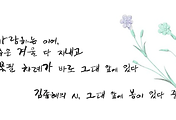 사랑하는 이여,
겨울 다 지내고
꽃필 차례가 바로 그대 앞에 있다
김종해의 시, 그대 앞에 봄이 있다 중